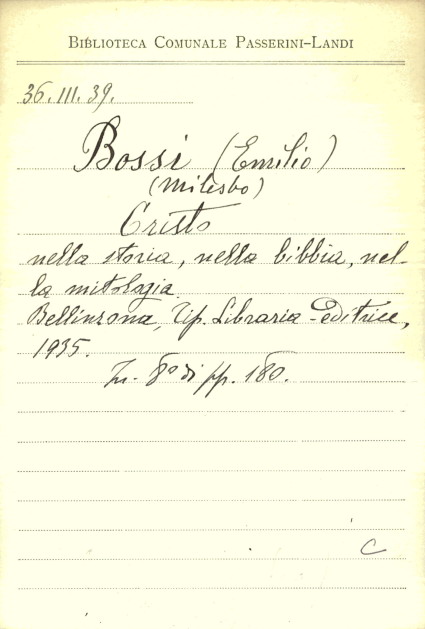 BIBLIOTECA COMUNALE PASSERINI-LANDI
36.III.39.
Bossi (Emilio)
(Milesbo)
Cristo
nella storia, nella bibbia, nel-
la mitologia.
Bellinzona, Tip. Libraria-editrice,
1935.
In-8º di pp. 180.
C